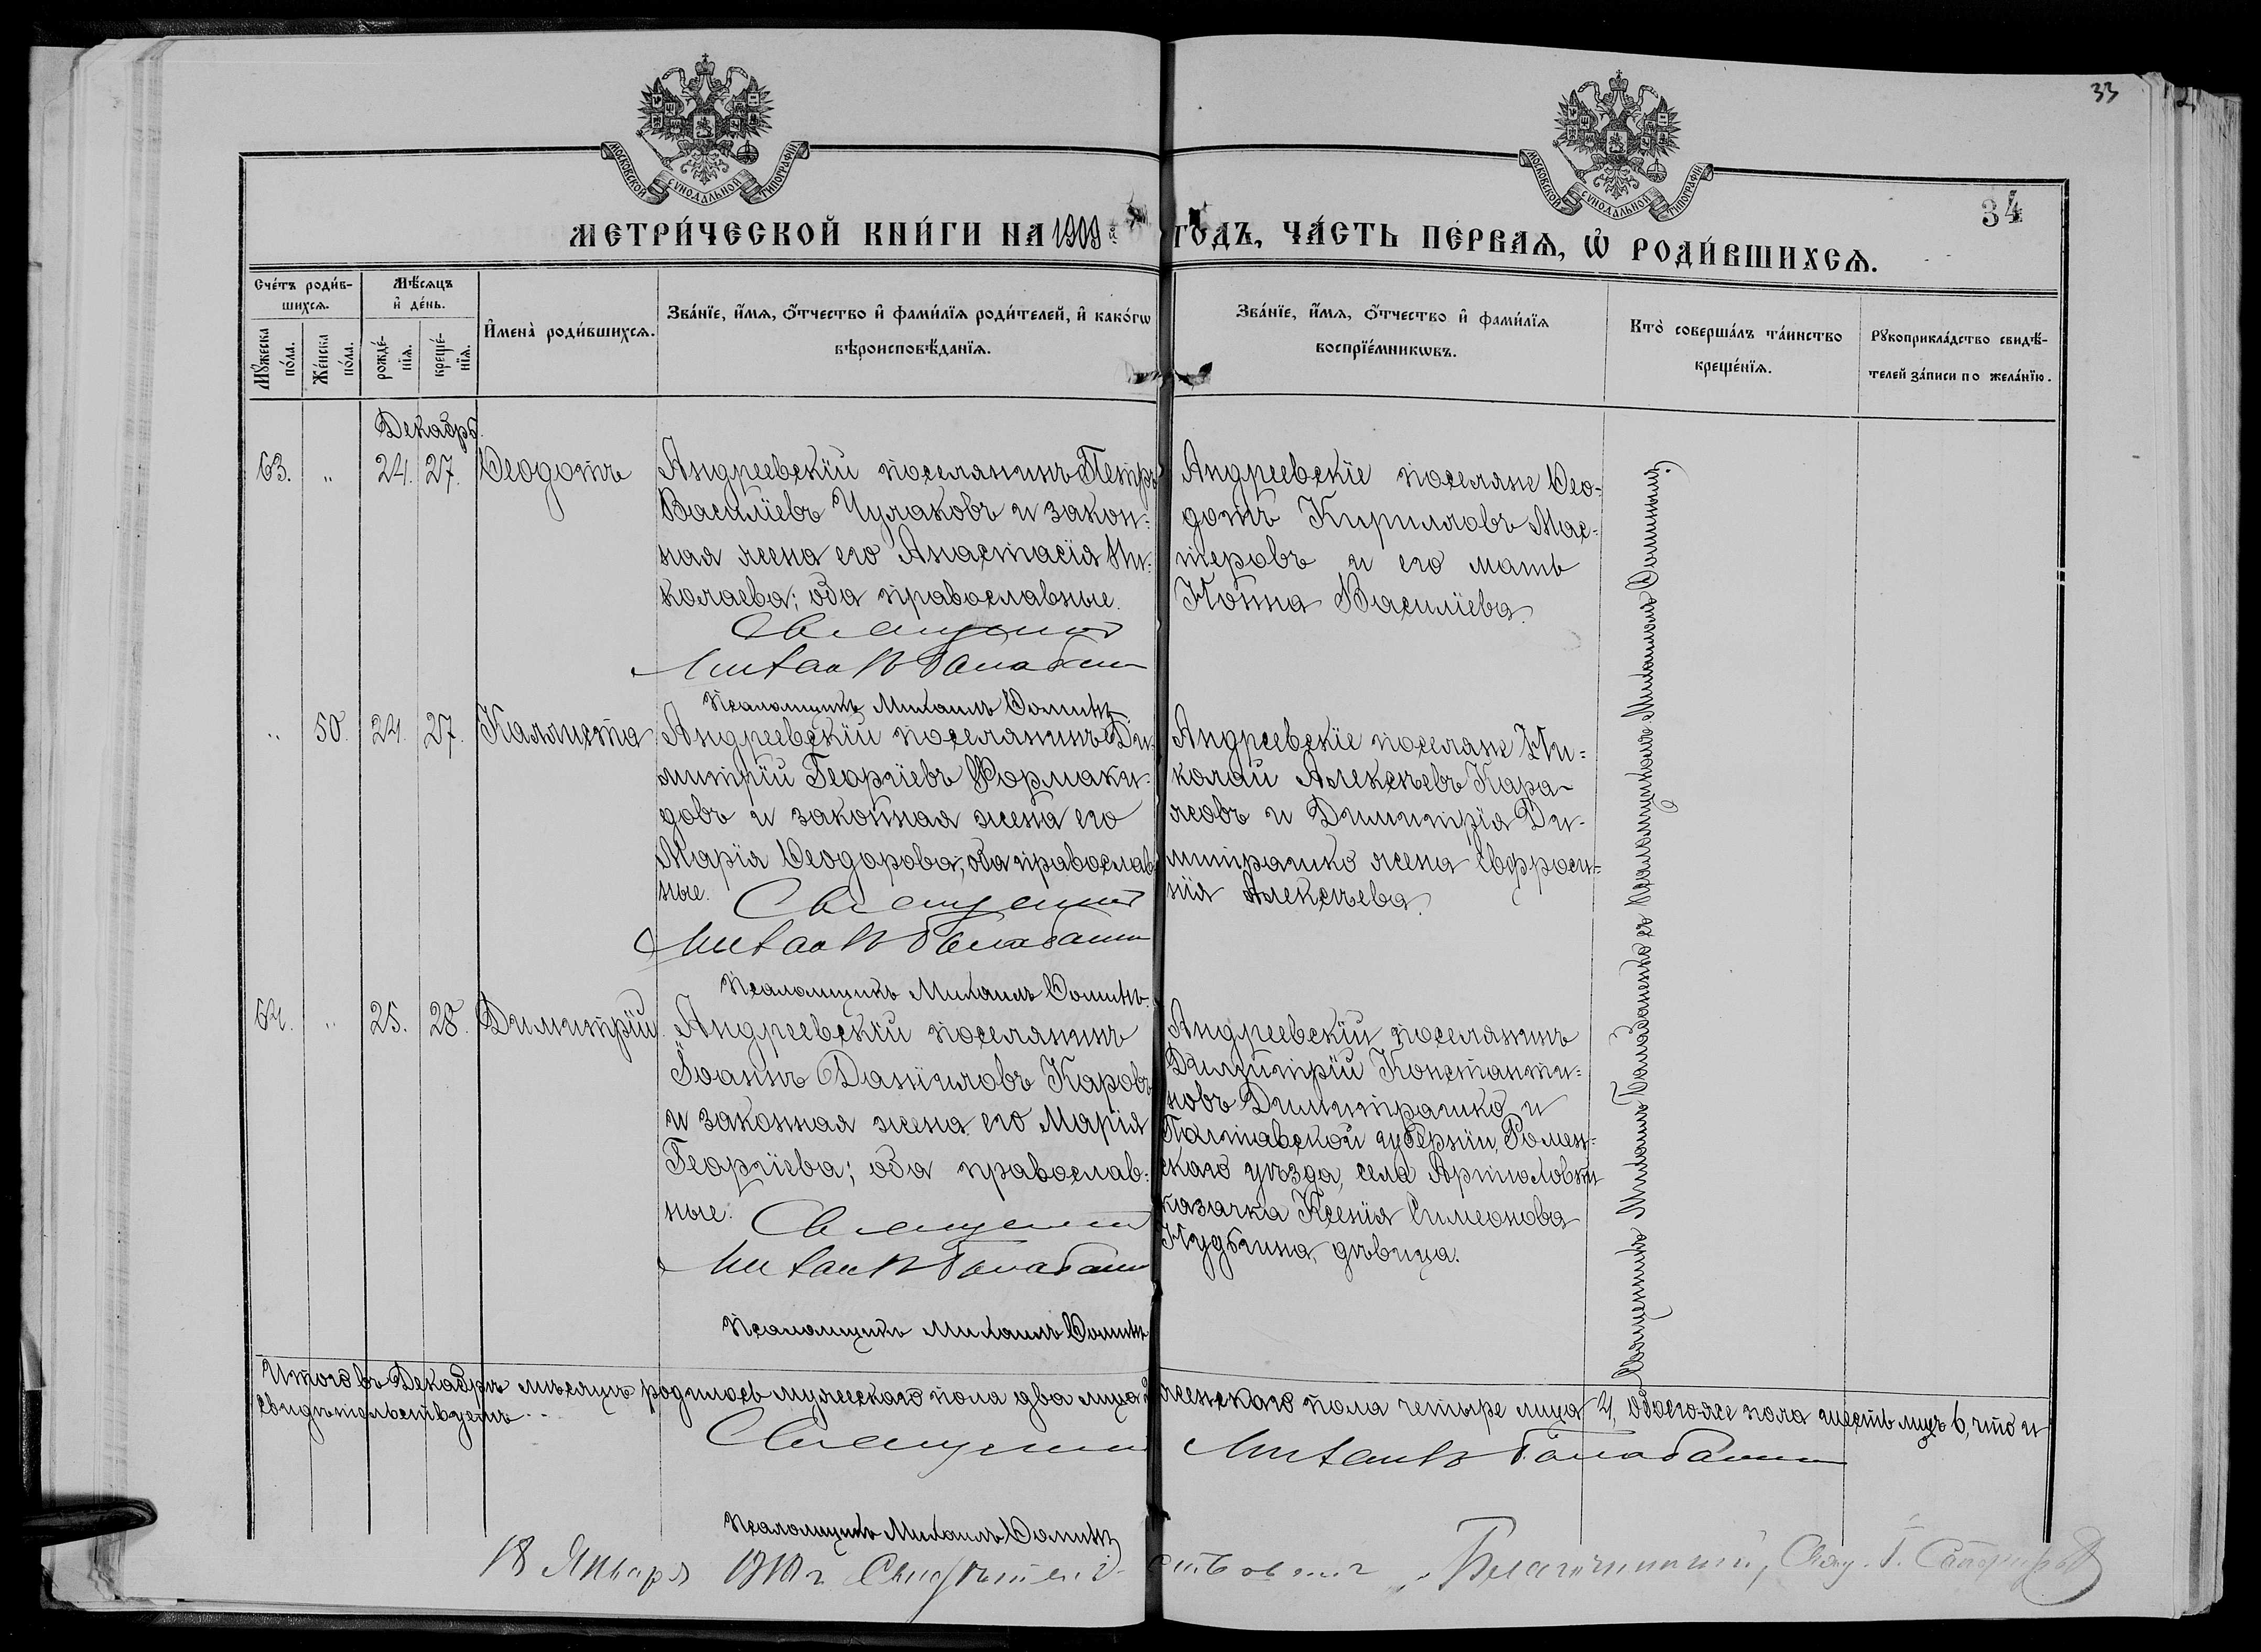 33
34
МОСКОВСКОЙ СѴНОДАЛЬНОЙ ТИПОГРАФІИ
МОСКОВСКОЙ СѴНОДАЛЬНОЙ ТИПОГРАФІИ
МЕТРИ́ЧЕСКОЙ КНИ́ГИ НА 1909й ГОДЪ, ЧА́СТЬ ПЕ́РВАѦ, Ѡ҆ РОДИ́ВШИХСѦ.
Сче́тъ роди́в-
шихсѧ.
Мꙋ́жеска по́ла.
Же́нска по́ла.
Мѣ́сѧцъ
и҆ де́нь.
рожде́-нїѧ.
креще́-нїѧ.
И҆мена̀ роди́вшихсѧ.
Зва́нїе, и҆́мѧ, ѻ҆́тчество и҆ фами́лїѧ роди́телей, и҆ како́гѡ
вѣроисповѣ́данїѧ.
Зва́нїе, и҆́мѧ, ѻ҆́тчество и҆ фами́лїѧ
воспрїе́мникѡвъ.
Кто̀ соверша́лъ та́инство
креще́нїѧ.
Рꙋкоприкла́дство свидѣ́-
телей за́писи по жела́нїю.
Декабрь.
63. „ 24. 27. Ѳеодотъ
Андреевскій поселянинъ Петръ
Василіевъ Чулаковъ и закон-
ная жена его Анастасія Ни-
колаева; оба православные.
Священникъ
Михаилъ Балабаненко
Псаломщикъ Михаилъ Ѳоминъ.
Андреевскіе поселяне Ѳео-
дотъ Кирилловъ Мас-
теровъ и его мать
Нонна Василіева.
„ 50. 24. 27. Каллиста
Андреевскій поселянинъ Ди-
митрій Георгіевъ Формаки-
довъ и законная жена его
Марія Ѳеодорова; оба православ-
ные.
Священникъ
Михаилъ Балабаненко
Псаломщикъ Михаилъ Ѳоминъ.
Андреевскіе поселяне Ни-
колай Алексѣевъ Кара-
жовъ и Димитрія Ди-
митрашко жена Евфроси-
нія Алексѣева.
64. „ 25. 28. Димитрій.
Андреевскій поселянинъ
Іоаннъ Даніиловъ Каровъ
и законная жена его Марія
Георгіева; оба православ-
ные.
Священникъ
Михаилъ Балабаненко
Псаломщикъ Михаилъ Ѳоминъ
Андреевскій поселянинъ
Димитрій Константи-
новъ Димитрашко и
Полтавской губерніи, Ромен-
скаго уѣзда, села Артполовки
казачка Ксенія Симеонова
Нудьгина, дѣвица.
Священникъ Михаилъ Балабаненко съ Псаломщикомъ Михаиломъ Ѳоминымъ.
Итого въ Декабрѣ мѣсяцѣ родилось мужескаго пола два лица женскаго пола четыре лица 4, обоего же пола шесть лицъ 6, что и
свидѣтельствуемъ.
Священникъ Михаилъ Балабаненко
Псаломщикъ Михаилъ Ѳоминъ
18 Января 1910 г. Свидѣтельствовалъ Благочинный, Свящ. Г. Сапфировъ